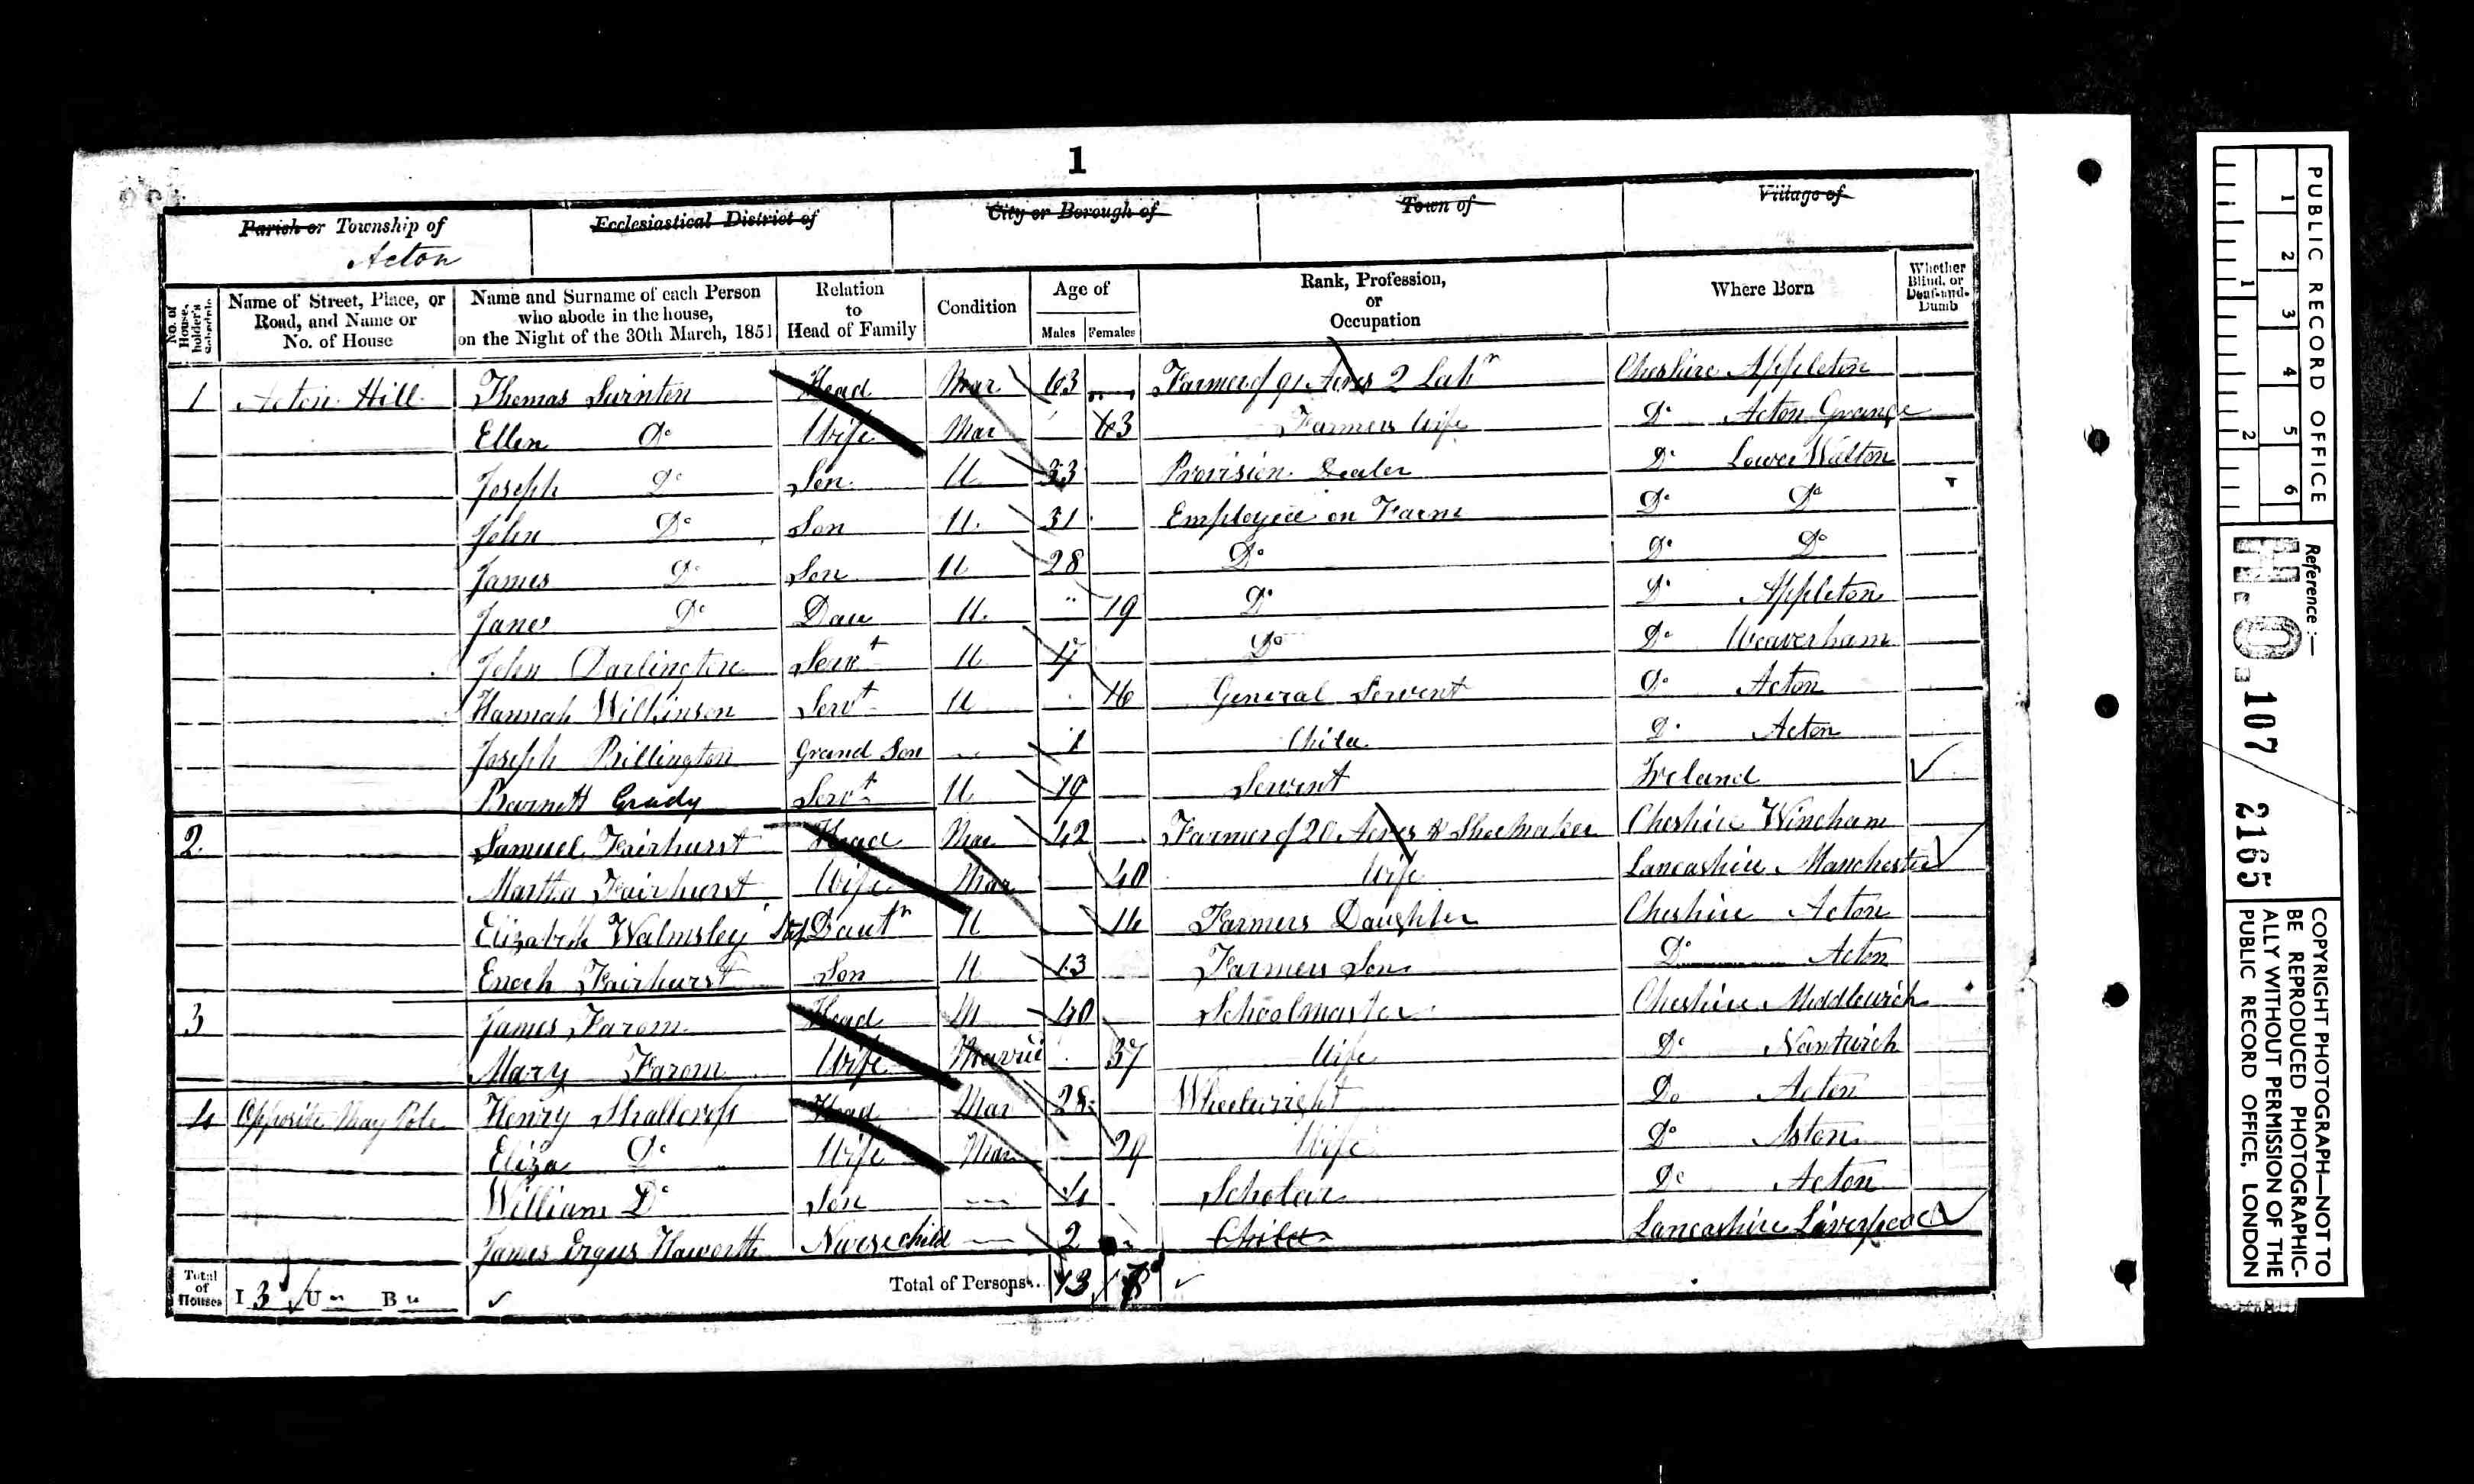 1
Parish or Township of
Acton
Ecclesiastical District of
City or Borough of
Town of
Village of
No. of House-holder's Schedule
Name of Street, Place, or Road, and Name or No. of House
Name and Surname of each Person who abode in the house, on the Night of the 30th March, 1851
Relation to Head of Family
Condition
Age of
Males Females
Rank, Profession, or Occupation
Where Born
Whether Blind, or Deaf-and-Dumb
1 Acton Hill Thomas Head Mar 63 Farmer of 91 Acres 2 Labr Cheshire Appleton
Ellen Do Wife Mar 63 Farmers Wife Do Acton Grange
Joseph Do Son U 33 Provision Dealer Do Lower Walton
John Do Son U. 31 Employed on Farm Do Do
James Do Son U 28 Do Do Do
Jane Do Dau U. 19 Do Do Appleton
John Darlington Servt U 17 Do Do Weaverham
Hannah Wilkinson Servt U 16 General Servent Do Acton
Joseph Billington Grand Son 1 Child Do Acton
Barnett Grady Servt U 19 Servent Ireland
2. Samuel Fairhurst Head Mar 42 Farmer of 20 Acres & Shoemaker Cheshire Wincham
Martha Fairhurst Wife Mar 40 Wife Lancashire Manchester
Elizabeth Walmsley Step Dautr U Farmers Daughter Cheshire Acton
Enoch Fairhurst Son U 13 Farmers Son Do Acton
3 James Farom Head M 40 Schoolmaster Cheshire Middlewich
Mary Farom Wife 37 Wife Do Nantwich
4 Opposite May Pole Henry Shallcross Head Mar 28 Wheelwright Do Acton
Eliza Do Wife Mar 29 Wife Do Aston
William Do Son 4 Scholar Do Acton
James Haworth Nurse child 2 Child Lancashire Liverpool
Total of Houses I 3 U B
Total of Persons... 13
PUBLIC RECORD OFFICE
1 2 3 4 5 6
1 2
Reference:—
H.O. 107 / 2165
COPYRIGHT PHOTOGRAPH—NOT TO
BE REPRODUCED PHOTOGRAPHIC-
ALLY WITHOUT PERMISSION OF THE
PUBLIC RECORD OFFICE, LONDON